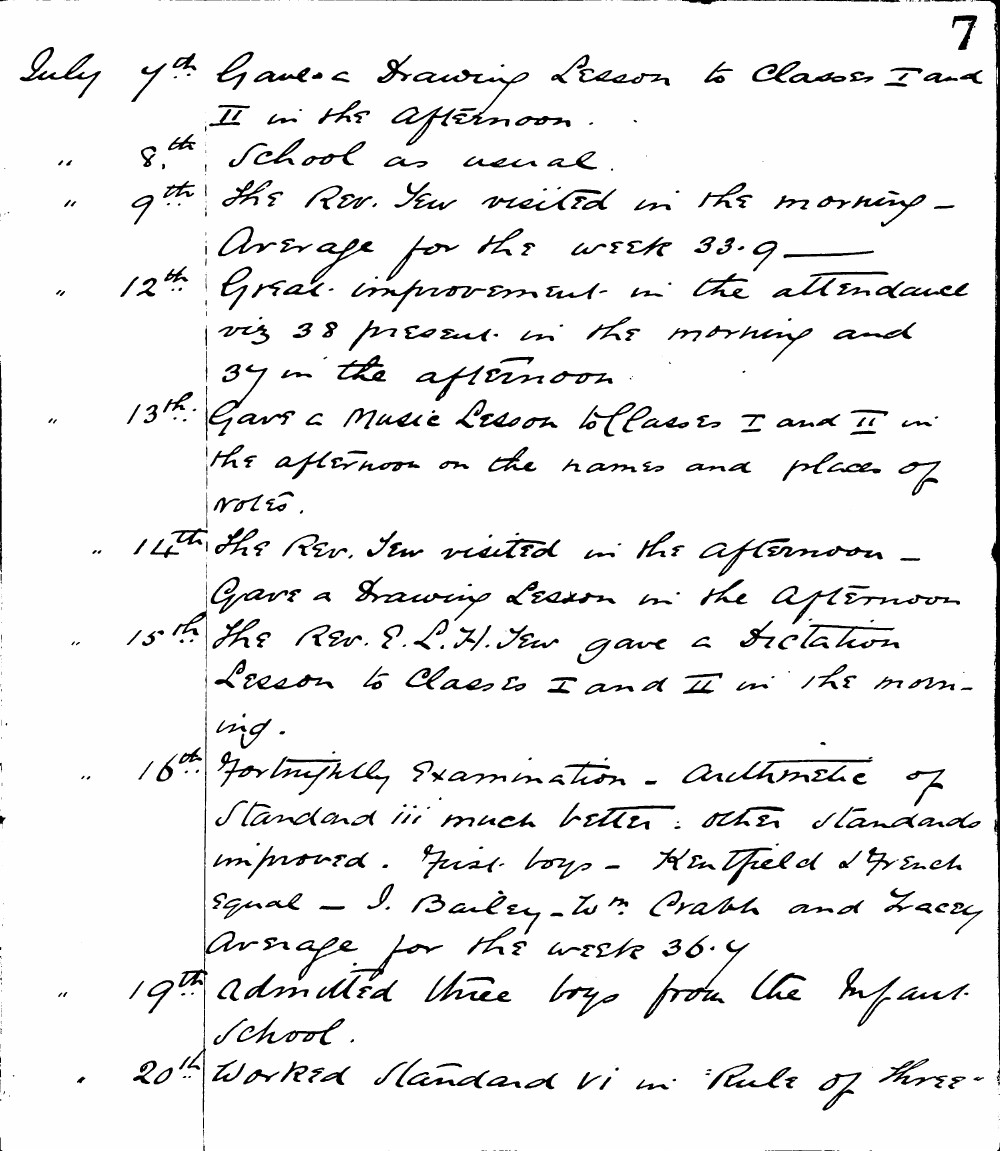 7
July 7th Gave a Drawing Lesson to Classes I and
II in the afternoon.
" 8th School as usual.
" 9th The Rev. Tew visited in the morning -
Average for the week 33.9 —
" 12th Great improvement in the attendance
viz 38 present in the morning and
37 in the afternoon
" 13th Gave a Music Lesson to Classes I and II in
the afternoon on the names and places of
notes.
" 14th The Rev. Tew visited in the afternoon -
Gave a Drawing Lesson in the afternoon
" 15th The Rev. E. L. H. Tew gave a Dictation
Lesson to Classes I and II in the morn-
ing.
" 16th Fortnightly Examination - Arithmetic of
Standard iii much better : other standards
improved. First boys - Kentfield & French
equal - I. Bailey - Wm Crabb and Tracey
Average for the week 36.7
" 19th Admitted three boys from the Infant
School.
" 20th Worked Standard vi in "Rule of three"